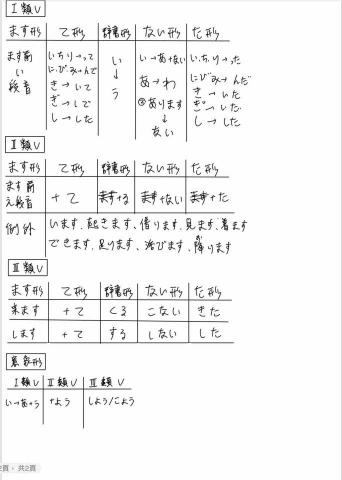 Ⅰ類V
ます形 て形 辞書形 ない形 た形
ます前 い段音 いちり→って い→う い→あ+ない いちり→った
にびみ→んで あ→わ にびみ→んだ
き→いて ⊗あります→ない き→いた
ぎ→いで ぎ→いだ
し→した し→した
Ⅱ類V
ます形 て形 辞書形 ない形 た形
ます前 え段音 +て ます+る ます+ない ます+た
例外 います、起きます、借ります、見ます、着ます
できます、足ります、浴びます、降ります
Ⅲ類V
ます形 て形 辞書形 ない形 た形
来ます +て くる こない きた
します +て する しない した
意向形
Ⅰ類V Ⅱ類V Ⅲ類V
+よう しよう/こよう
2頁，共2頁